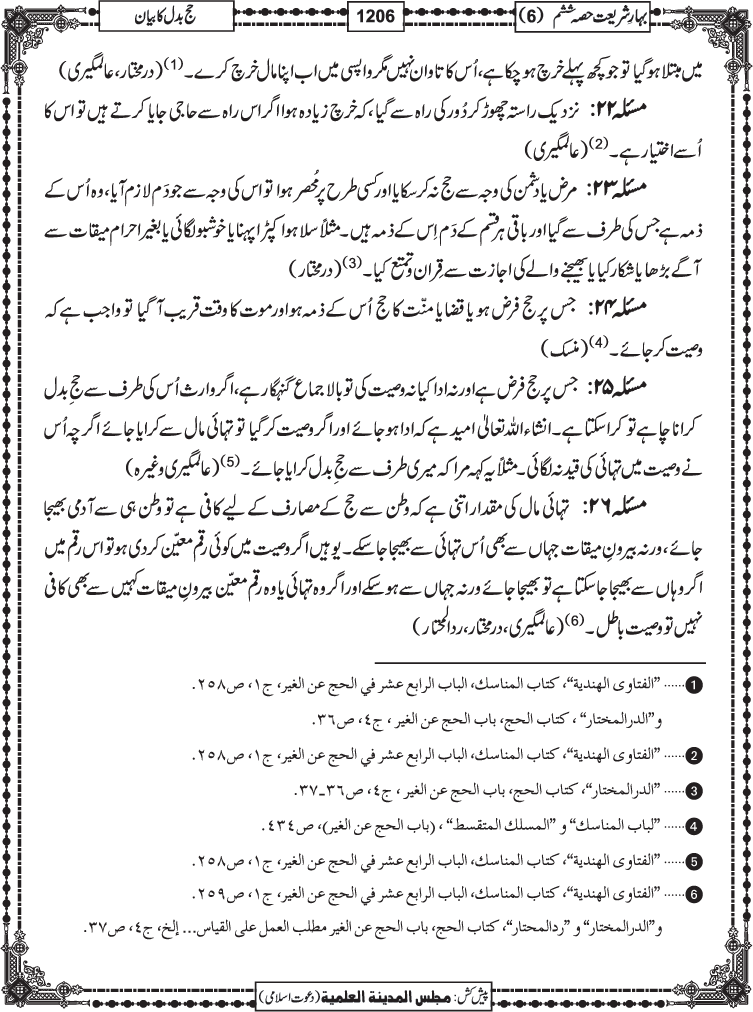 بہارِ شریعت حصہ ششم (6)
1206
حج بدل کا بیان
میں مبتلا ہوگیا تو جو کچھ پہلے خرچ ہو چکا ہے، اُس کا تاوان نہیں مگر واپسی میں اب اپنا مال خرچ کرے۔(1) (درمختار، عالمگیری)
مسئلہ ۲۲: نزدیک راستہ چھوڑ کر دُور کی راہ سے گیا، کہ خرچ زیادہ ہوا اگر اس راہ سے حاجی جایا کرتے ہیں تو اس کا
اُسے اختیار ہے۔(2) (عالمگیری)
مسئلہ ۲۳: مرض یا دشمن کی وجہ سے حج نہ کرسکا یا اور کسی طرح پر مُحصر ہوا تو اس کی وجہ سے جو دَم لازم آیا، وہ اُس کے
ذمہ ہے جس کی طرف سے گیا اور باقی ہر قسم کے دَم اِس کے ذمہ ہیں۔ مثلاً سلا ہوا کپڑا پہنا یا خوشبو لگائی یا بغیر احرام میقات سے
آگے بڑھا یا شکار کیا یا بھیجنے والے کی اجازت سے قِران و تمتع کیا۔(3) (درمختار)
مسئلہ ۲۴: جس پر حج فرض ہو یا قضا یا منّت کا حج اُس کے ذمہ ہو اور موت کا وقت قریب آگیا تو واجب ہے کہ
وصیت کر جائے۔(4) (منسک)
مسئلہ ۲۵: جس پر حج فرض ہے اور نہ ادا کیا نہ وصیت کی تو بالاجماع گنہگار ہے، اگر وارث اُس کی طرف سے حجِ بدل
کرانا چاہے تو کرا سکتا ہے۔ انشاء اللہ تعالیٰ امید ہے کہ ادا ہو جائے اور اگر وصیت کر گیا تو تہائی مال سے کرایا جائے اگرچہ اُس
نے وصیت میں تہائی کی قید نہ لگائی۔ مثلاً یہ کہہ مرا کہ میری طرف سے حجِ بدل کرایا جائے۔(5) (عالمگیری وغیرہ)
مسئلہ ۲۶: تہائی مال کی مقدار اتنی ہے کہ وطن سے حج کے مصارف کے لیے کافی ہے تو وطن ہی سے آدمی بھیجا
جائے، ورنہ بیرونِ میقات جہاں سے بھی اُس تہائی سے بھیجا جاسکے۔ یوہیں اگر وصیت میں کوئی رقم معیّن کردی ہو تو اس رقم میں
اگر وہاں سے بھیجا جاسکتا ہے تو بھیجا جائے ورنہ جہاں سے ہوسکے اور اگر وہ تہائی یا وہ رقم معیّن بیرونِ میقات کہیں سے بھی کافی
نہیں تو وصیت باطل۔(6) (عالمگیری، درمختار، ردالمحتار)
1 ...... ”الفتاوی الھندیة“، کتاب المناسك، الباب الرابع عشر في الحج عن الغیر، ج١، ص٢٥٨.
و”الدرالمختار“ ، کتاب الحج، باب الحج عن الغیر ، ج٤، ص٣٦.
2 ...... ”الفتاوی الھندیة“، کتاب المناسك، الباب الرابع عشر في الحج عن الغیر، ج١، ص٢٥٨.
3 ...... ”الدرالمختار“، کتاب الحج، باب الحج عن الغیر ، ج٤، ص٣٦-٣٧.
4 ...... ”لباب المناسك“ و ”المسلك المتقسط“ ، (باب الحج عن الغیر)، ص٤٣٤.
5 ...... ”الفتاوی الھندیة“، کتاب المناسك، الباب الرابع عشر في الحج عن الغیر، ج١، ص٢٥٨.
6 ...... ”الفتاوی الھندیة“، کتاب المناسك، الباب الرابع عشر في الحج عن الغیر، ج١، ص٢٥٩.
و”الدرالمختار“ و ”ردالمحتار“، کتاب الحج، باب الحج عن الغیر مطلب العمل علی القیاس... إلخ، ج٤، ص٣٧.
پیش کش: مجلس المدینة العلمیة (دعوت اسلامی)